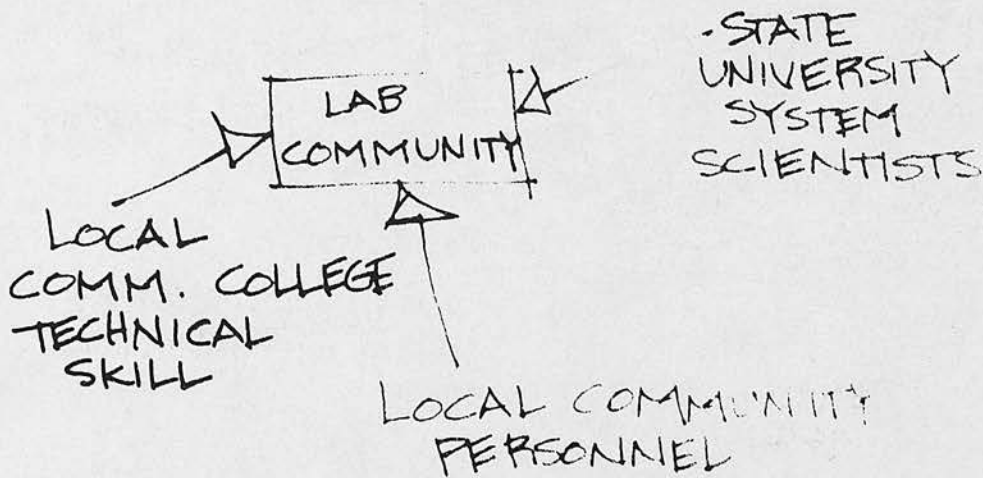 LAB
COMMUNITY
·STATE
UNIVERSITY
SYSTEM
SCIENTISTS
LOCAL
COMM. COLLEGE
TECHNICAL
SKILL
LOCAL COMMUNITY
PERSONNEL